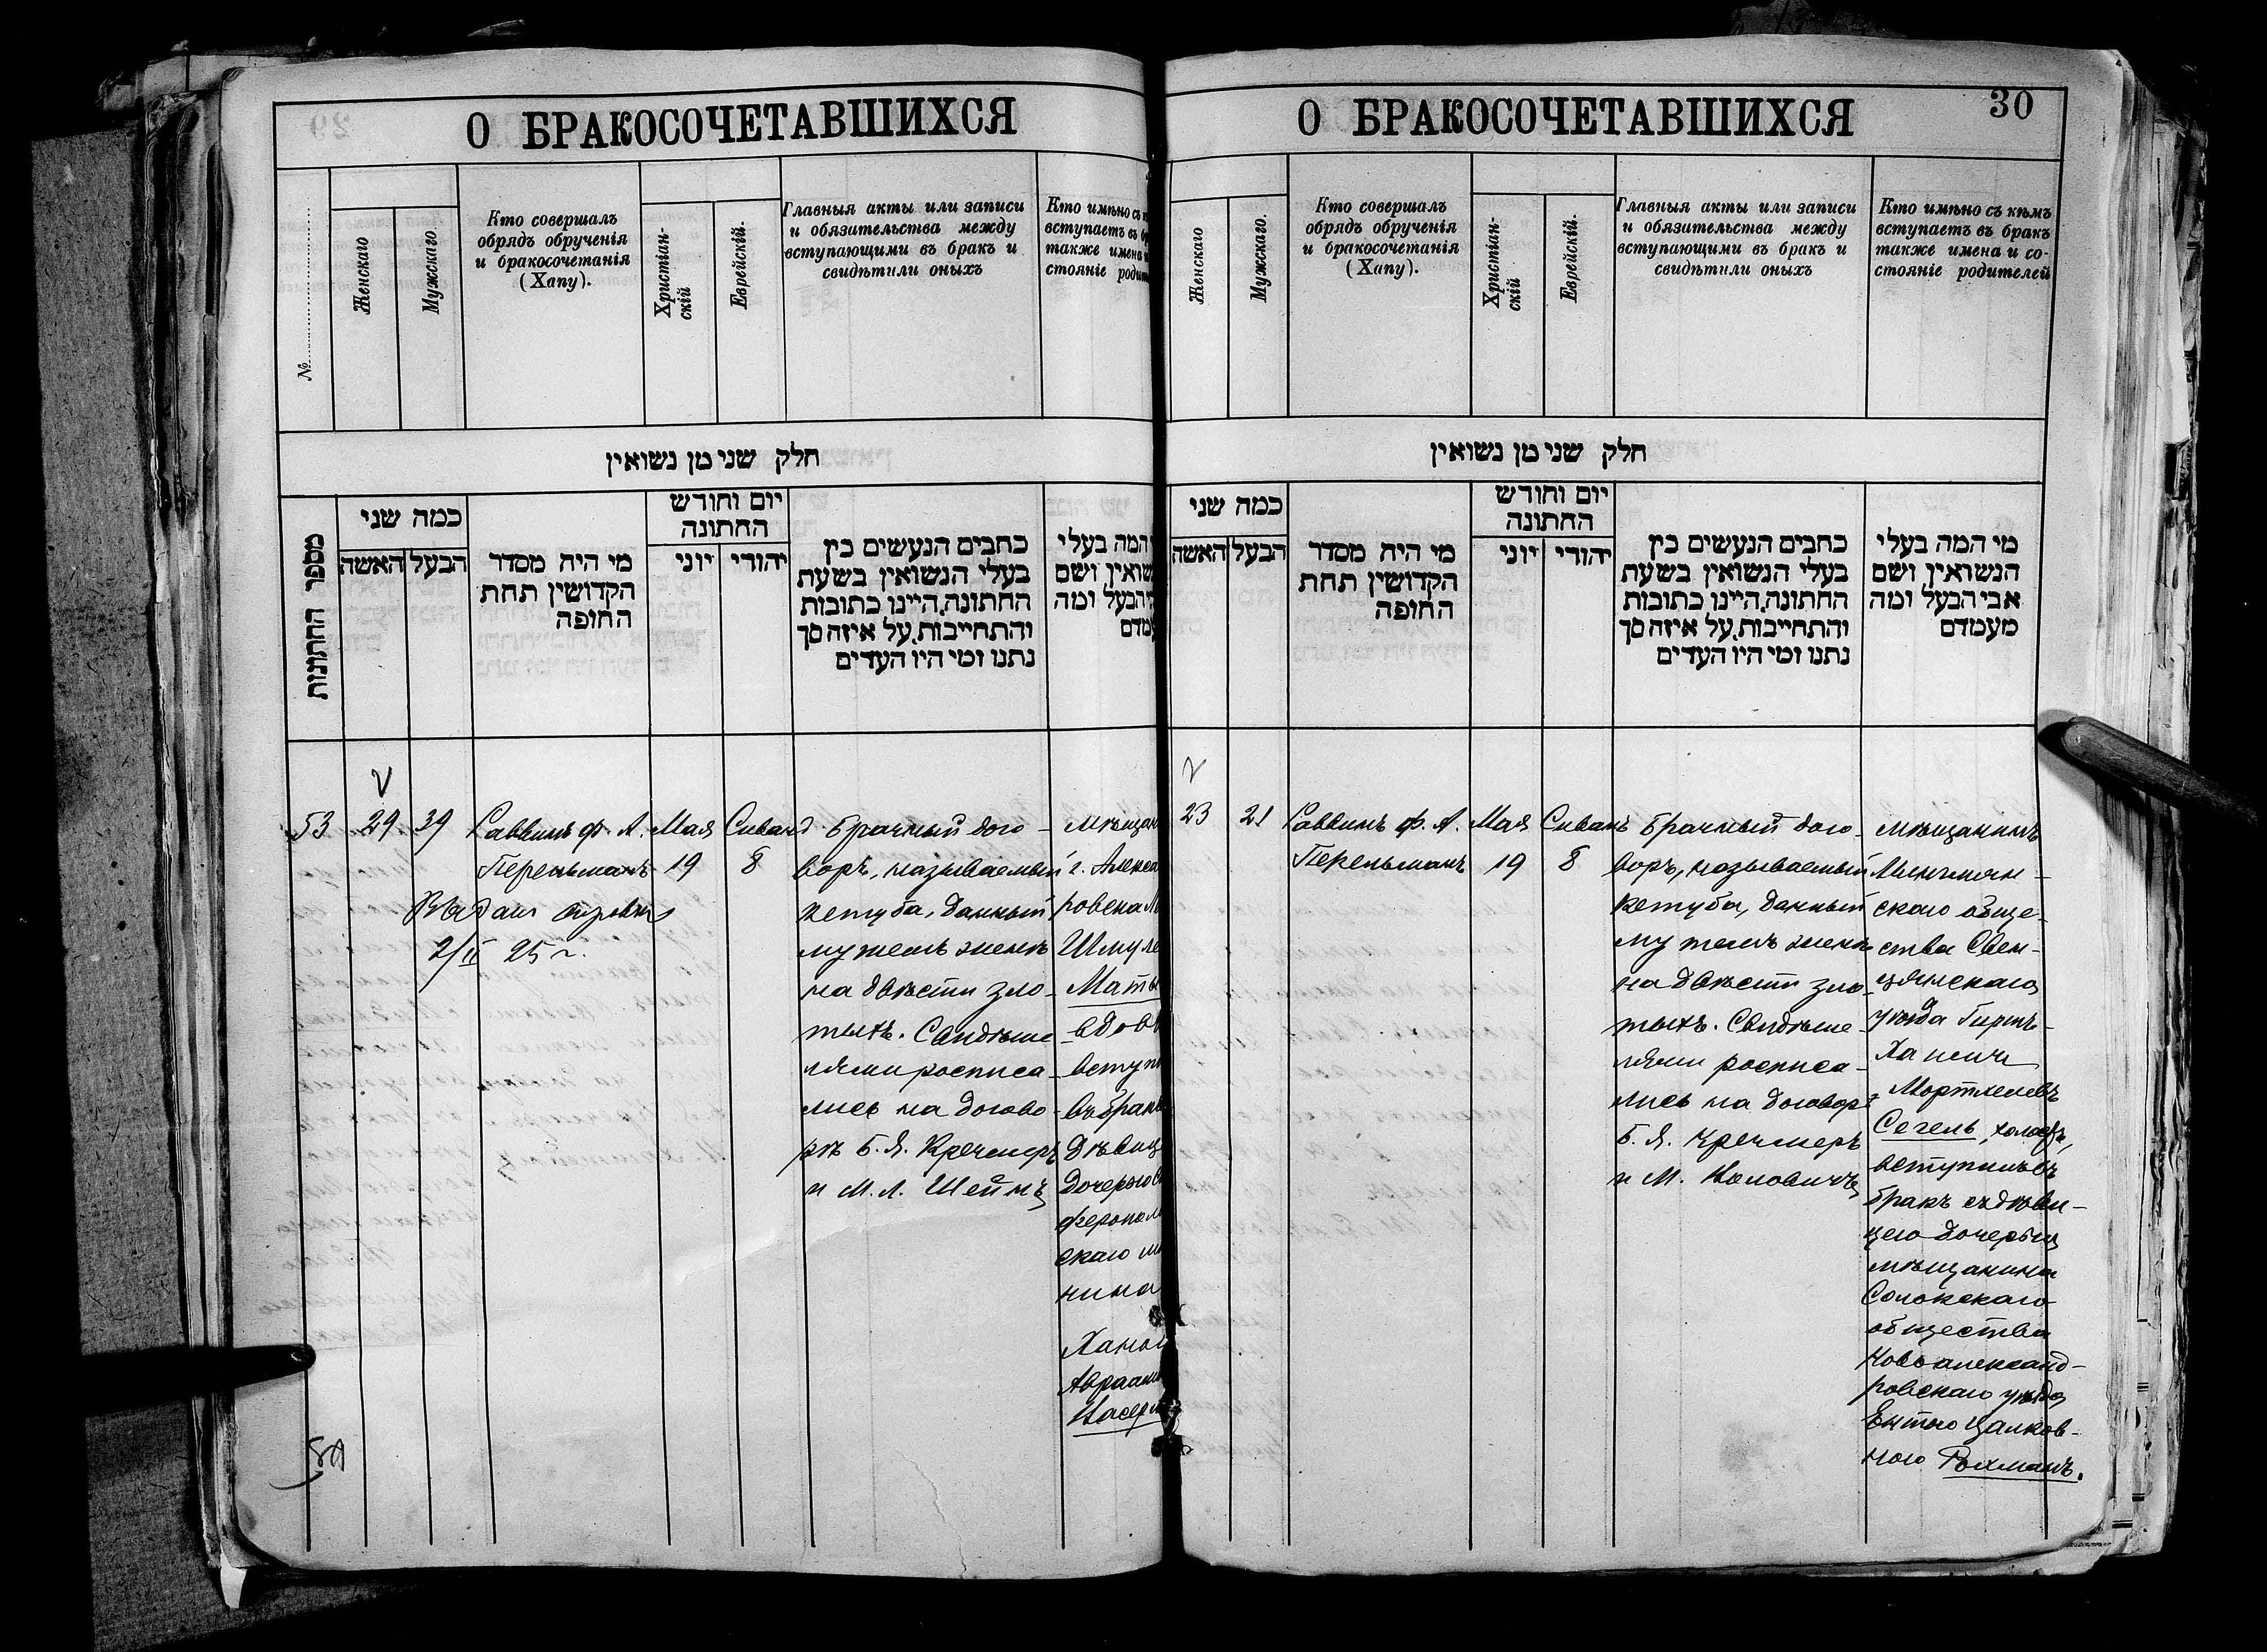 О БРАКОСОЧЕТАВШИХСЯ
№
Женскаго
Мужскаго.
Кто совершалъ
обрядъ обрученія
и бракосочетанія
(Хапу).
Христіан-
скій
Еврейскій.
Главныя акты или записи
и обязательства между
вступающими въ бракъ и
свидѣтили оныхъ
Кто имѣно съ
вступаетъ въ
также имена
стояніе
חלק שני מן נשואין
מספר החתונות
כמה שני
האשה
הבעל
מי היה מסדר
הקדושין תחת
החופה
יום וחודש
החתונה
יוני
יהודי
כתבים הנעשים בין
בעלי הנשואין בשעת
החתונה,היינו כתובות
והתחייבות,על איזה סך
נתנו ומי היו העדים
המה בעלי
ושם
הבעל ומה
53
29
39
Раввинъ Ф. А.
Перельманъ
Мая
19
Сиванъ
8
2/II 25 г.
Брачный дого-
воръ, называемый
кетуба, данный
мужемъ женѣ
на двѣсти зло-
тыхъ. Свидѣте
лями росписа-
лись на догово-
рѣ Б. Я. Кречмеръ
и М. Л. Шейнъ
г.
въ бракъ
скаго
нина
54
О БРАКОСОЧЕТАВШИХСЯ
30
Женскаго
Мужскаго.
Кто совершалъ
обрядъ обрученія
и бракосочетанія
(Хапу).
Христіан-
скій
Еврейскій.
Главныя акты или записи
и обязательства между
вступающими въ бракъ и
свидѣтили оныхъ
Кто имѣно съ кѣмъ
вступаетъ въ бракъ
также имена и со-
стояніе родителей
חלק שני מן נשואין
כמה שני
האשה
הבעל
מי היה מסדר
הקדושין תחת
החופה
יום וחודש
החתונה
יוני
יהודי
כתבים הנעשים בין
בעלי הנשואין בשעת
החתונה,היינו כתובות
והתחייבות,על איזה סך
נתנו ומי היו העדים
מי המה בעלי
הנשואין ושם
אבי הבעל ומה
מעמדם
23
21
Раввинъ Ф. А.
Перельманъ
Мая
19
Сиванъ
8
Брачный дого-
воръ, называемый
кетуба, данный
мужемъ женѣ
на двѣсти зло-
тыхъ. Свидѣте-
лями росписа-
лись на договорѣ
Б. Я. Кречмеръ
и М.
мѣщанинъ
скаго обще-
ства Свен-
цянскаго
уѣзда Гиршъ-
Мортхелевъ
Сегель, холостъ,
вступилъ въ
бракъ съ дѣви-
цею дочерью
мѣщанина
Солокскаго
общества
Новоалександ-
ровскаго уѣзда
Рохманъ.